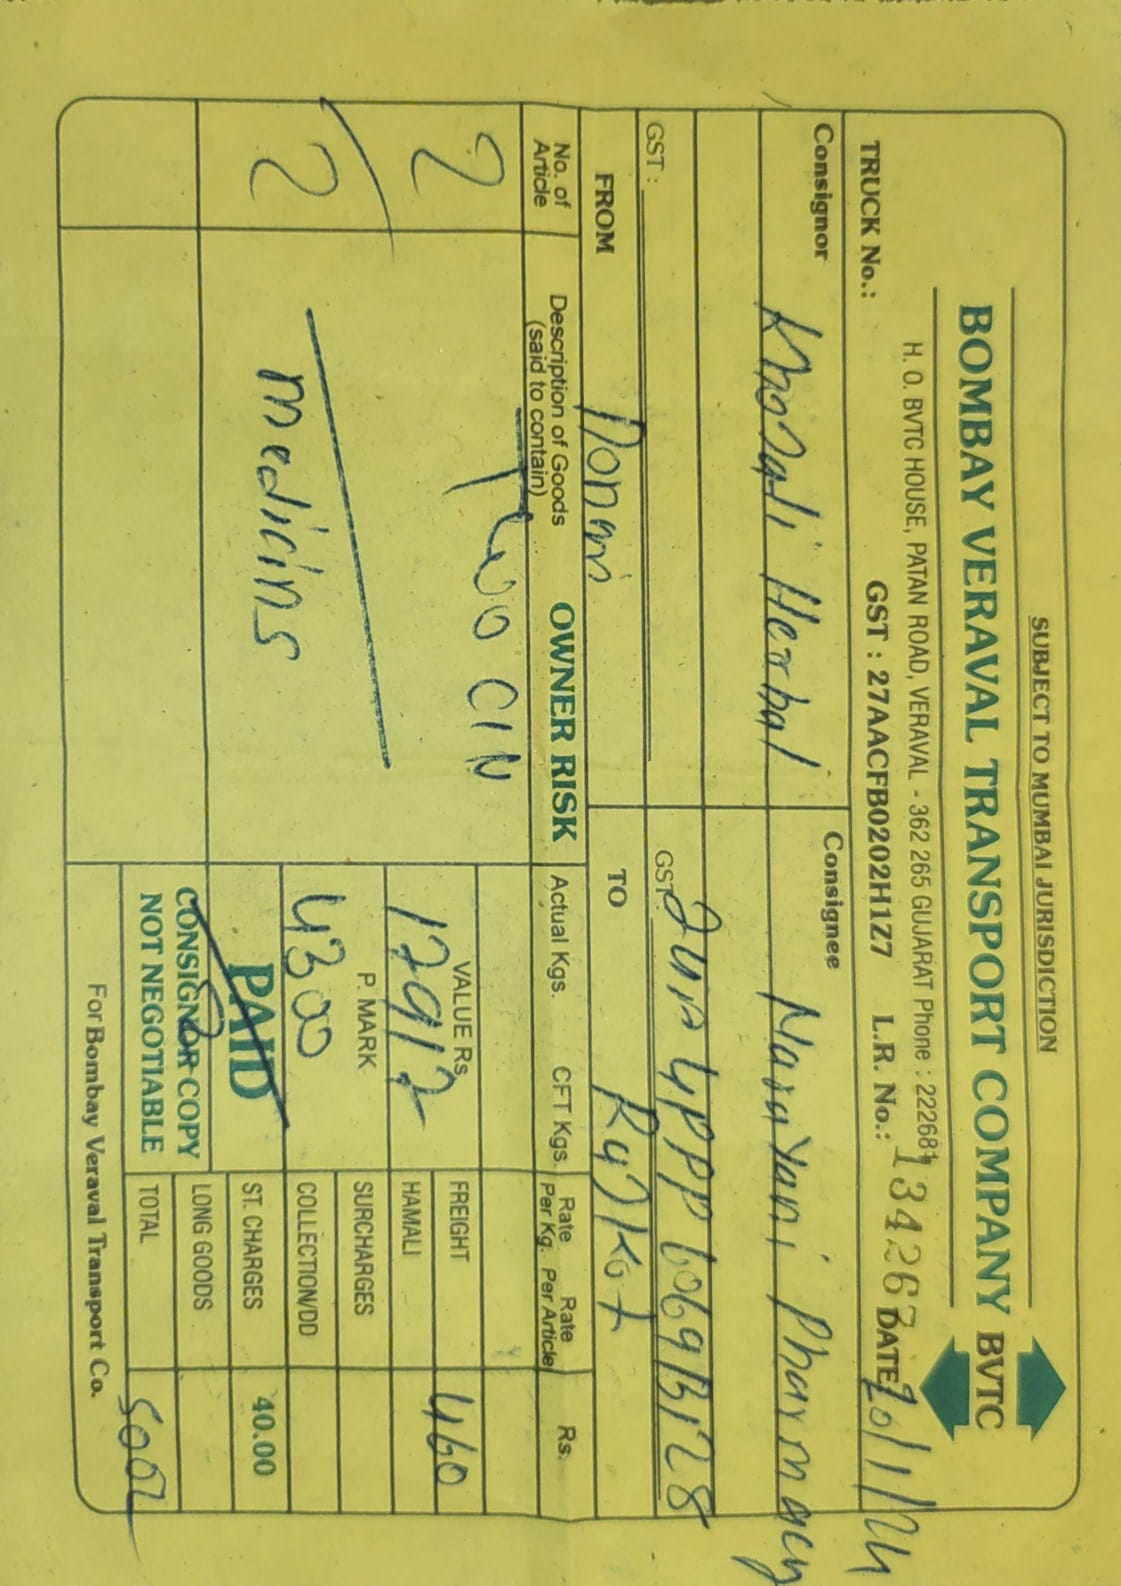 SUBJECT TO MUMBAI JURISDICTION
BOMBAY VERAVAL TRANSPORT COMPANY BVTC
H. O. BVTC HOUSE, PATAN ROAD, VERAVAL - 362 265 GUJARAT Phone : 222681
GST : 27AACFB0202H1Z7 L.R. No.: 134267
TRUCK No.: DATE 20/1/24
Consignor Consignee
Herbal Narayani Pharmacy
GST : GST:
FROM TO Rajkot
No. of Article Description of Goods (said to contain) OWNER RISK Actual Kgs. CFT Kgs. Rate Per Kg. Rate Per Article Rs.
2 Two CIN
VALUE Rs. FREIGHT 460
17917 HAMALI
P. MARK SURCHARGES
4300 COLLECTION/DD
2 medicins
PAID ST. CHARGES 40.00
CONSIGNOR COPY LONG GOODS
NOT NEGOTIABLE TOTAL 500/
For Bombay Veraval Transport Co.